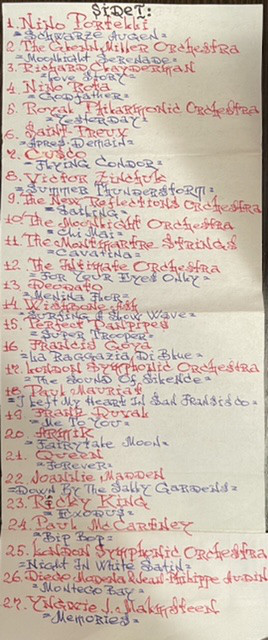 SIDE 1:
1. Nino Portelli
=Schwarze Augen=
2. The Glenn Miller Orchestra
=Moonlight Serenade=
3. Richard Clayderman
=Love Story=
4. Nino Rota
=Godfather=
5. Royal Philarmonic Orchestra
=Yesterday=
6. Saint Preux
=Apres Demain=
7. Cusco
=Flying Condor=
8. Victor Zinchuk
=Summer Thunderstorm=
9. The New Reflections Orchestra
=Sailing=
10. The Moonlight Orchestra
=Chi Mai=
11. The Montmartre Strings
=Cavatina=
12. The Intimate Orchestra
=For Your Eyes Only=
13. Deodato
=Menina Flor=
14. Wishbone Ash
=Surfing A Slow Wave=
15. Perfect Panpipes
=Super Trooper=
16. Francis Goya
=La Ragazzia Di Blue=
17. London Symphonic Orchestra
=The Sound Of Silence=
18. Paul Mauriat
=I Left My Heart In San Fransisco=
19. Frank Duval
=Me To You=
20. Armik
=Fairytale Moon=
21. Queen
=Forever=
22. Joannie Madden
=Down By The Sally Gardens=
23. Ricky King
=Exodus=
24. Paul McCartney
=Bip Bop=
25. London Symphonic Orchestra
=Night In White Satin=
26. Diego Modena & Jean-Philippe Audin
=Montego Bay=
27. Yngwie J. Malmsteen
=Memories=